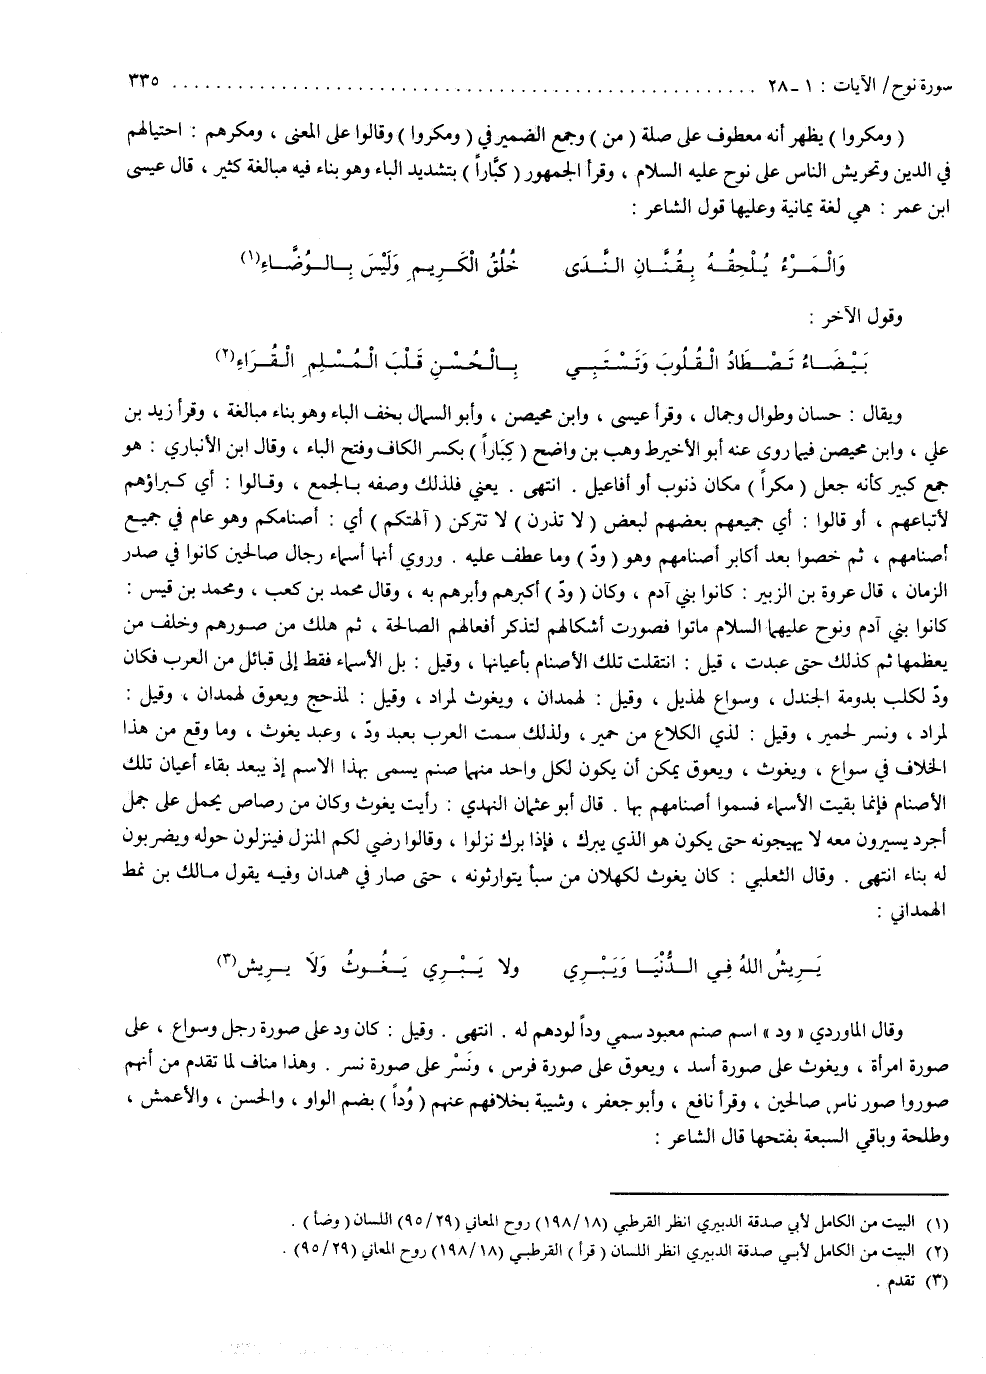 سورة نوح/ الآيات : ١ ـ ٢٨ ........................................................ ٣٣٥
( ومكروا ) يظهر أنه معطوف على صلة ( من ) وجمع الضمير في ( ومكروا ) وقالوا على المعنى ، ومكرهم : احتيالهم
في الدين وتحريش الناس على نوح عليه السلام ، وقرأ الجمهور ( كبَّاراً ) بتشديد الباء وهو بناء فيه مبالغة كثير ، قال عيسى
ابن عمر : هي لغة يمانية وعليها قول الشاعر :
وَالْمَرْءُ يُلْحِقُهُ بِقُنَّانِ النَّدَى خُلُقُ الْكَرِيمِ وَلَيْسَ بِالْوُضَّاءِ(١)
وقول الآخر :
بَيْضَاءُ تَصْطَادُ الْقُلُوبَ وَتَسْتَبِي بِالْحُسْنِ قَلْبَ الْمُسْلِمِ الْقُرَاءِ(٢)
ويقال : حسان وطوال وجمال ، وقرأ عيسى ، وابن محيصن ، وأبو السمال بخف الباء وهو بناء مبالغة ، وقرأ زيد بن
علي ، وابن محيصن فيما روى عنه أبو الأخيرط وهب بن واضح ( كِبَاراً ) بكسر الكاف وفتح الباء ، وقال ابن الأنباري : هو
جمع كبير كأنه جعل ( مكراً ) مكان ذنوب أو أفاعيل . انتهى . يعني فلذلك وصفه بالجمع ، وقالوا : أي كبراؤهم
لأتباعهم ، أو قالوا : أي جميعهم بعضهم لبعض ( لا تذرن ) لا تتركن ( آلهتكم ) أي : أصنامكم وهو عام في جميع
أصنامهم ، ثم خصوا بعد أكابر أصنامهم وهو ( ودّ ) وما عطف عليه . وروي أنها أسماء رجال صالحين كانوا في صدر
الزمان ، قال عروة بن الزبير : كانوا بني آدم ، وكان ( ودّ ) أكبرهم وأبرهم به ، وقال محمد بن كعب ، ومحمد بن قيس :
كانوا بني آدم ونوح عليهما السلام ماتوا فصورت أشكالهم لتذكر أفعالهم الصالحة ، ثم هلك من صورهم وخلف من
يعظمها ثم كذلك حتى عبدت ، قيل : انتقلت تلك الأصنام بأعيانها ، وقيل : بل الأسماء فقط إلى قبائل من العرب فكان
ودّ لكلب بدومة الجندل ، وسواع لهذيل ، وقيل : لهمدان ، ويغوث لمراد ، وقيل : لمذحج ويعوق لهمدان ، وقيل :
لمراد ، ونسر لحمير ، وقيل : لذي الكلاع من حمير ، ولذلك سمت العرب بعبد ودّ ، وعبد يغوث ، وما وقع من هذا
الخلاف في سواع ، ويغوث ، ويعوق يمكن أن يكون لكل واحد منهما صنم يسمى بهذا الاسم إذ يبعد بقاء أعيان تلك
الأصنام فإنما بقيت الأسماء فسموا أصنامهم بها . قال أبو عثمان النهدي : رأيت يغوث وكان من رصاص يحمل على جمل
أجرد يسيرون معه لا يهيجونه حتى يكون هو الذي يبرك ، فإذا برك نزلوا ، وقالوا رضي لكم المنزل فينزلون حوله ويضربون
له بناء انتهى . وقال الثعلبي : كان يغوث لكهلان من سبأ يتوارثونه ، حتى صار في همدان وفيه يقول مالك بن نمط
الهمداني :
يَرِيشُ اللهُ فِي الدُّنْيَا وَيَبْرِي ولا يَبْرِي يَغُوثُ وَلَا يريش(٣)
وقال الماوردي « ود » اسم صنم معبود سمي وداً لودهم له . انتهى . وقيل : كان ود على صورة رجل وسواع ، على
صورة امرأة ، ويغوث على صورة أسد ، ويعوق على صورة فرس ، ونَسْر على صورة نسر . وهذا مناف لما تقدم من أنهم
صوروا صور ناس صالحين ، وقرأ نافع ، وأبو جعفر ، وشيبة بخلافهم عنهم ( وُداً ) بضم الواو ، والحسن ، والأعمش ،
وطلحة وباقي السبعة بفتحها قال الشاعر :
(١) البيت من الكامل لأبي صدقة الدبيري انظر القرطبي (١٩٨/١٨) روح المعاني (٩٥/٢٩) اللسان ( وضأ ) .
(٢) البيت من الكامل لأبي صدقة الدبيري انظر اللسان ( قرأ ) القرطبي (١٩٨/١٨) روح المعاني (٩٥/٢٩) .
(٣) تقدم .